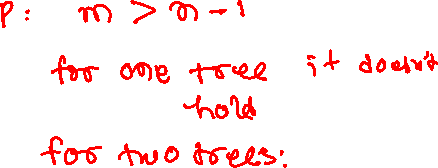 P: m > n - 1
for one tree it doesn't
hold
for two trees: